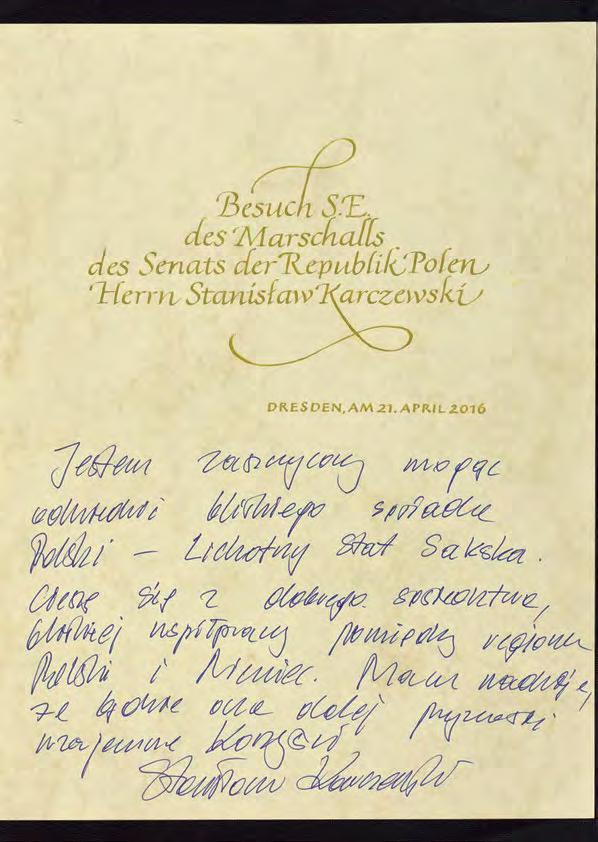 Besuch S.E.
des Marschalls
des Senats der Republik Polen
Herrn Stanisław Karczewski
DRESDEN, AM 21. APRIL 2016
Jestem zaszczycony mogąc
odwiedzić bliskiego sąsiada
Polski —
Cieszę się z dobrego sąsiedztwa,
bliskiej współpracy pomiędzy regionami
Polski i Niemiec. Mam nadzieję,
że będzie ona dalej przynosić
wzajemne korzyści
Stanisław Karczewski